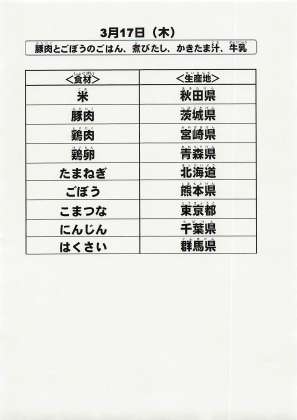 3月17日（木）
豚肉とごぼうのごはん、煮びたし、かきたま汁、牛乳
＜食材＞ ＜生産地＞
米 秋田県
豚肉 茨城県
鶏肉 宮崎県
鶏卵 青森県
たまねぎ 北海道
ごぼう 熊本県
こまつな 東京都
にんじん 千葉県
はくさい 群馬県